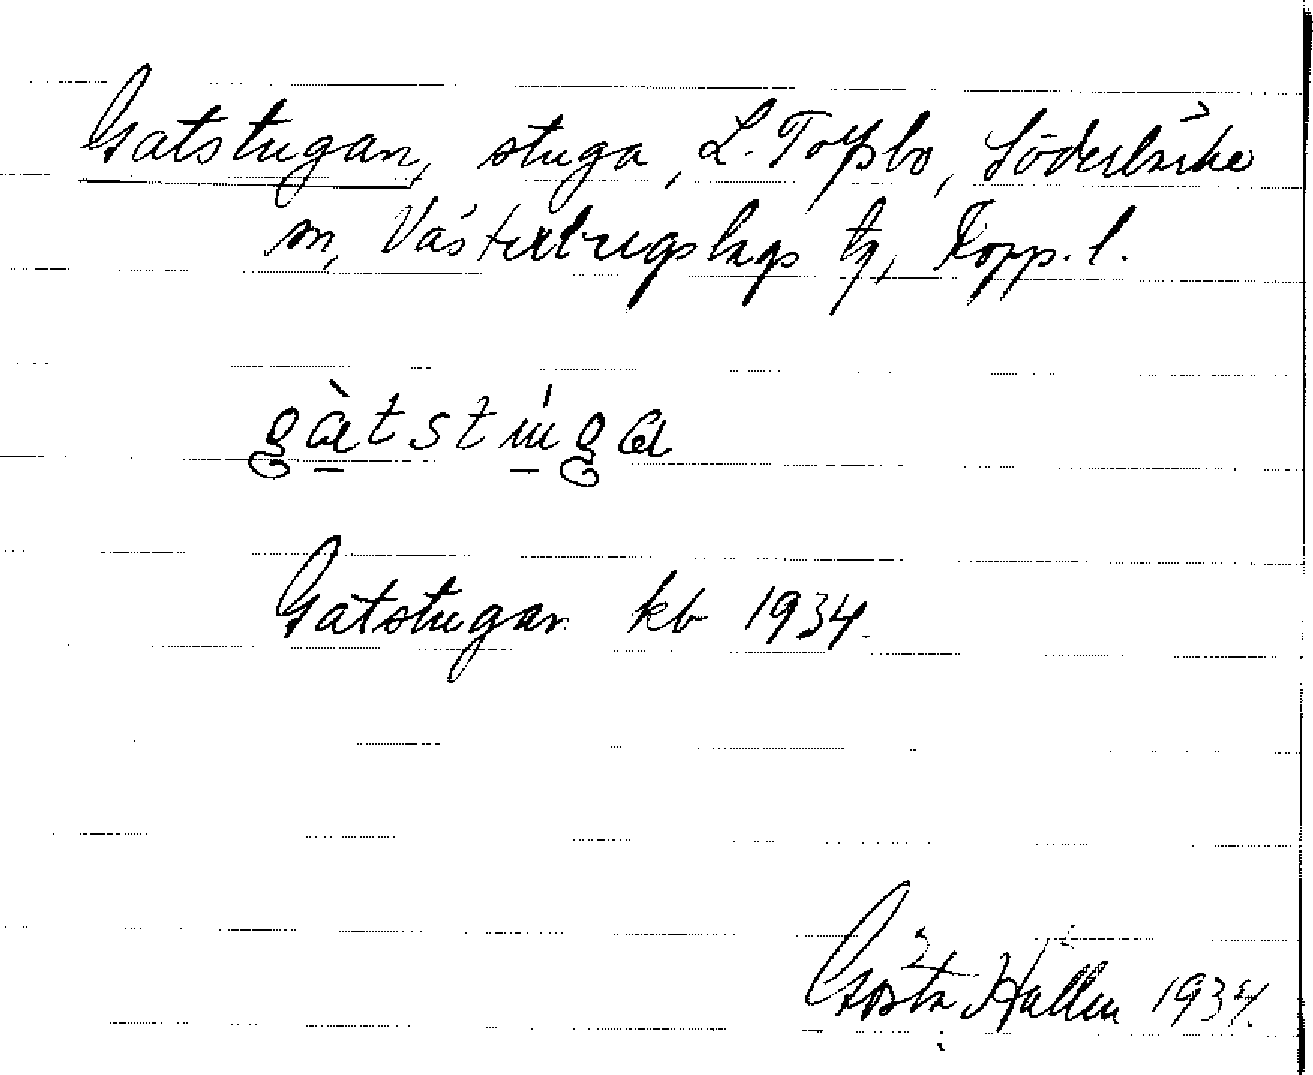 Gatstugan, stuga, L. Torsbo, Söderbärke
sn, Västerbergslags tg, Kopp. l.
gàtstúga
Gatstugan kb 1934.
Gösta Hallén 1934.